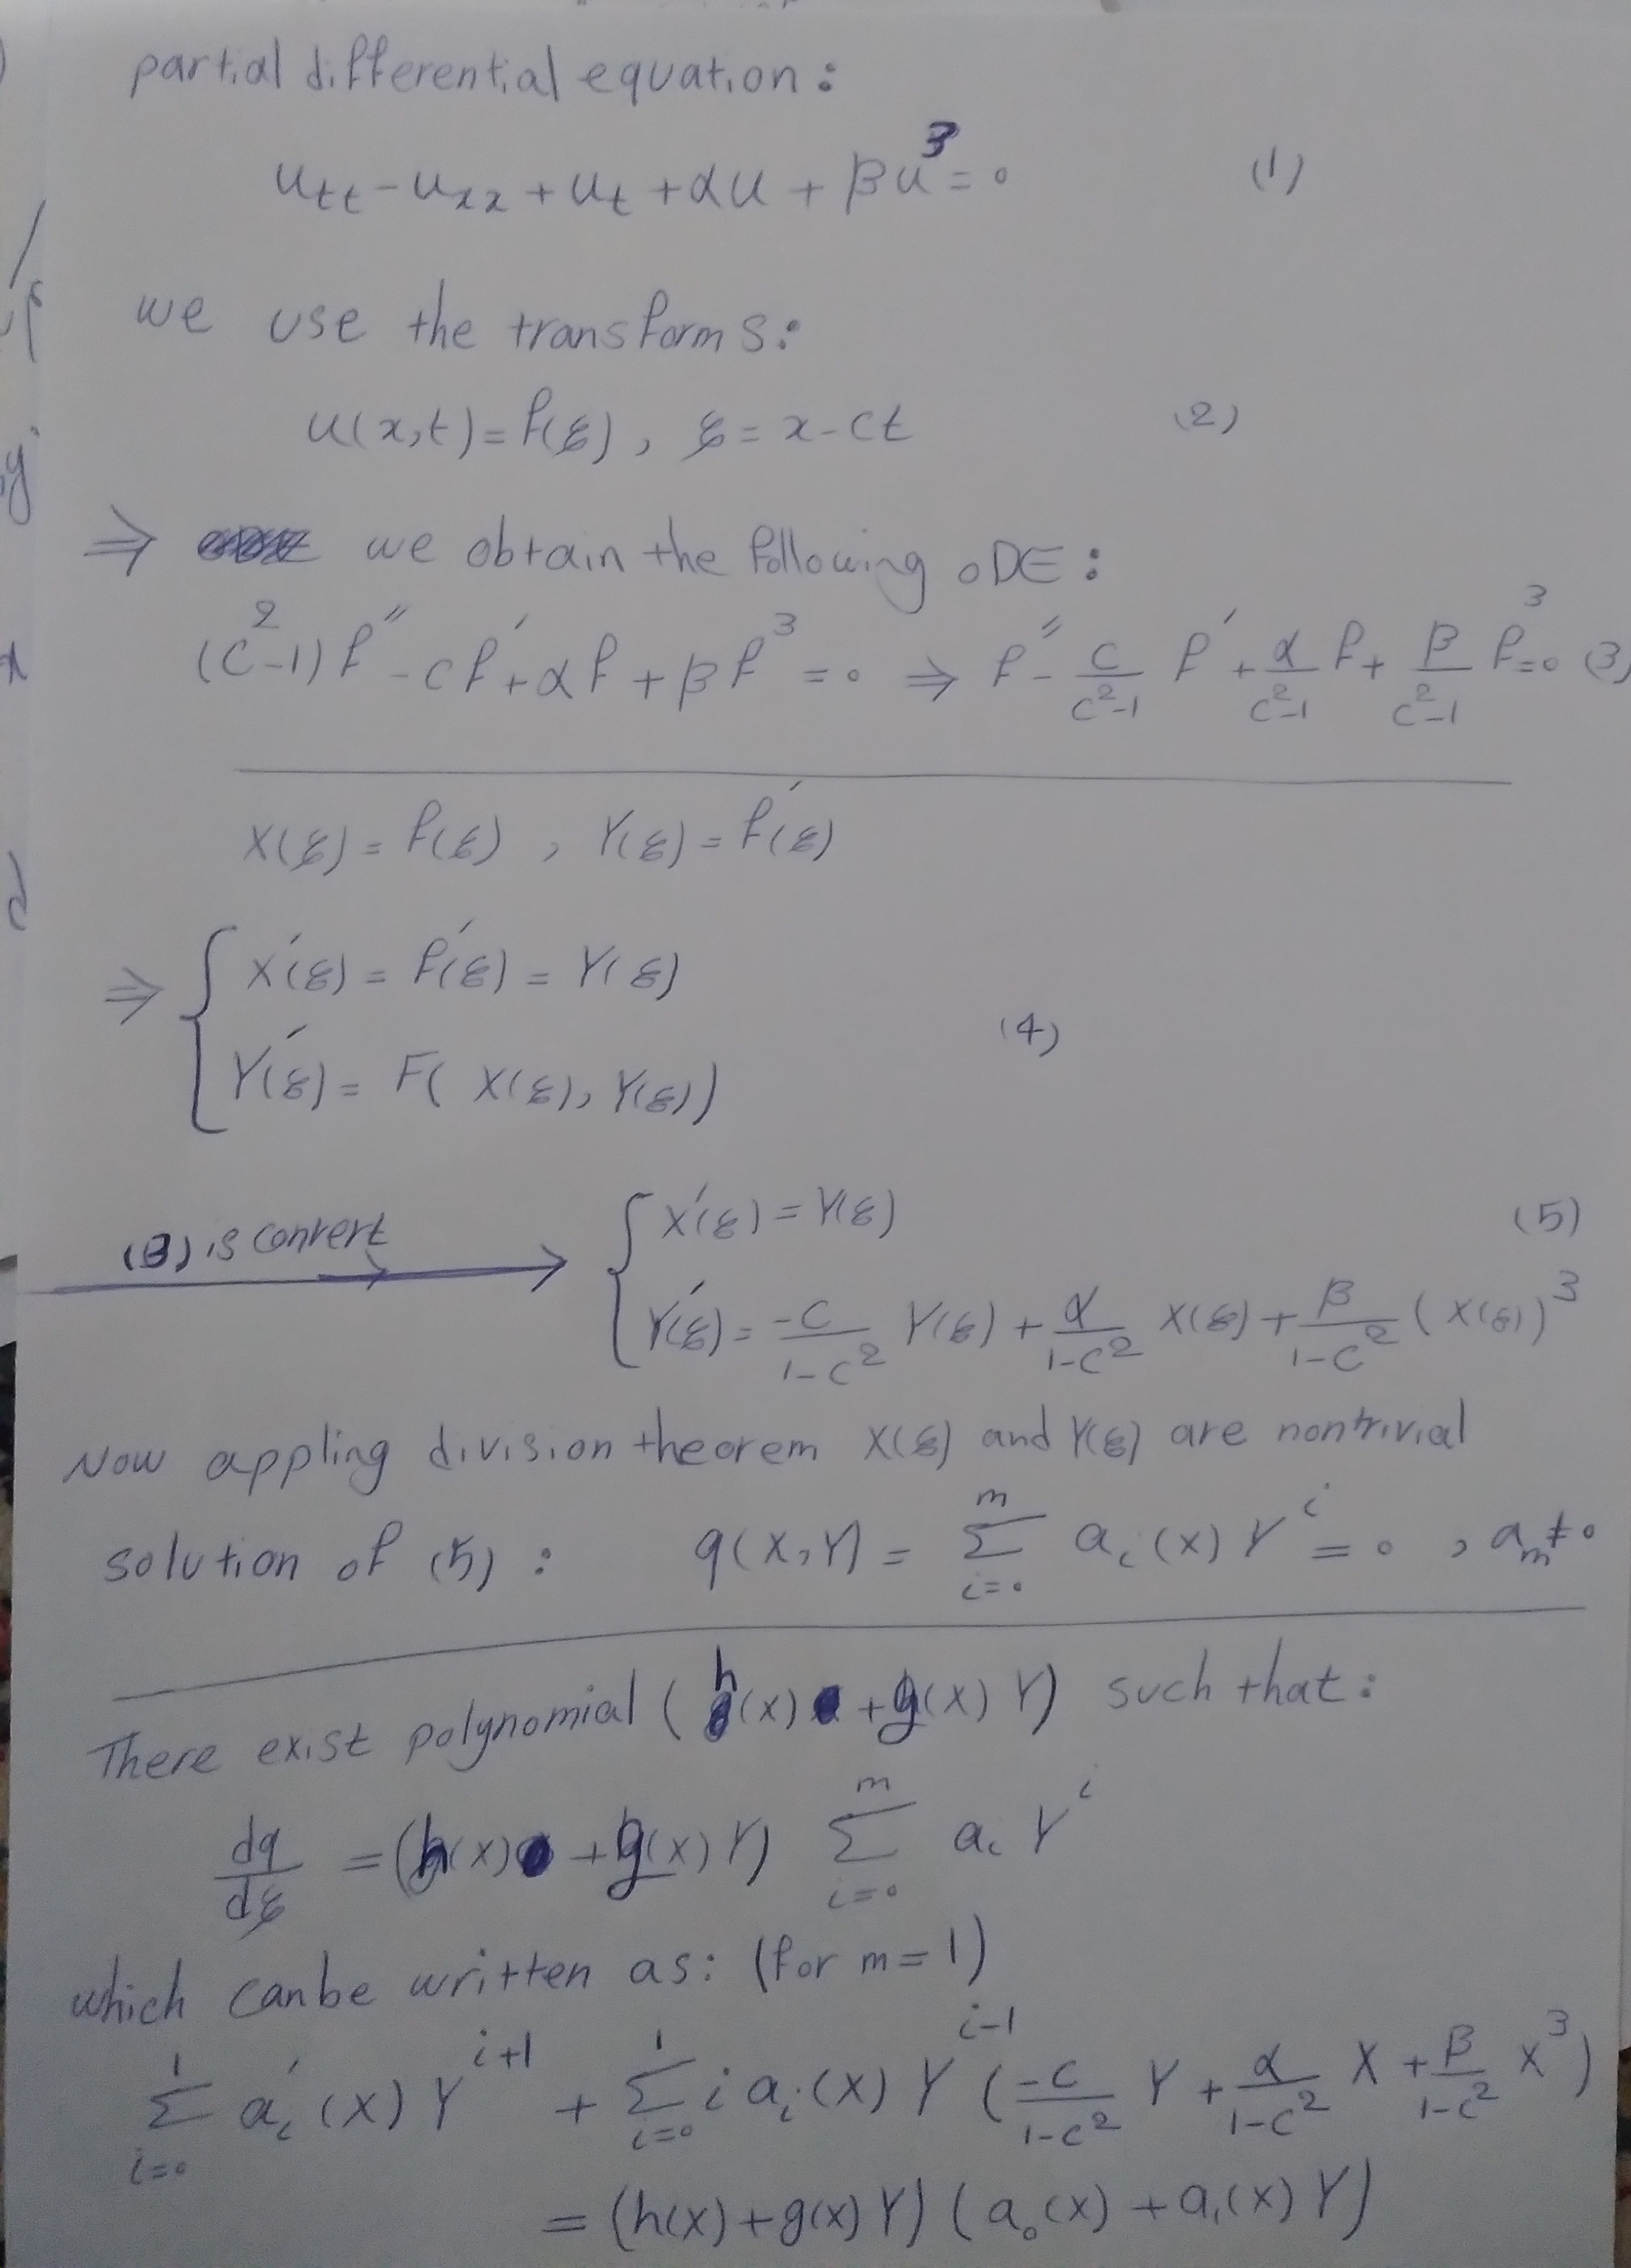 partial differential equation:
u_tt - u_xx + u_t + αu + βu³ = 0 (1)
we use the transforms:
u(x,t) = f(ξ), ξ = x - ct (2)
⇒ we obtain the following ODE:
(c²-1)f″ - cf′ + αf + βf³ = 0 ⇒ f″ - c/(c²-1) f′ + α/(c²-1) f + β/(c²-1) f³ = 0 (3)
X(ξ) = f(ξ), Y(ξ) = f′(ξ)
⇒ { X′(ξ) = f′(ξ) = Y(ξ)
Y′(ξ) = F( X(ξ), Y(ξ)) (4)
(3) is convert → { X′(ξ) = Y(ξ) (5)
Y′(ξ) = -c/(1-c²) Y(ξ) + α/(1-c²) X(ξ) + β/(1-c²) (X(ξ))³
Now appling division theorem X(ξ) and Y(ξ) are nontrivial
solution of (5): q(X,Y) = Σ_{i=0}^{m} a_i(x) Y^i = 0, a_m ≠ 0
There exist polynomial (h(x) + g(x) Y) such that:
dq/dξ = (h(x) + g(x) Y) Σ_{i=0}^{m} a_i Y^i
which can be written as: (for m=1)
Σ_{i=0}^{1} a′_i(X) Y^{i+1} + Σ_{i=0}^{1} i a_i(X) Y^{i-1} (-c/(1-c²) Y + α/(1-c²) X + β/(1-c²) X³)
= (h(X) + g(X) Y) (a₀(X) + a₁(X) Y)